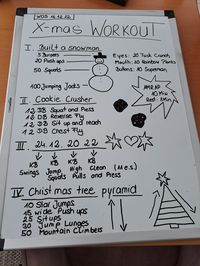 WOD 16.12.22
X-mas WORKOUT
I. Built a snowman
5 Burpees
20 Push ups
50 Squats
100 Jumping Jacks
Eyes: 20 Tuck Crunch
Mouth: 10 Rainbow Planks
Buttons: 10 Superman
II. Cookie Crusher
12 DB Squat and Press
12 DB Reverse Fly
12 DB Sit up and reach
12 DB Chest Fly
AMRAP
10 Min
Rest: 1 Min
III. 24. 12. 20 22
KB KB KB KB
Swings Jump Squats High Pulls Clean and Press (M.e.s.)
IV. Christmas tree pyramid
10 Star Jumps
15 wide Push ups
25 Sit ups
30 Jump Lunges
50 Mountain Climbers